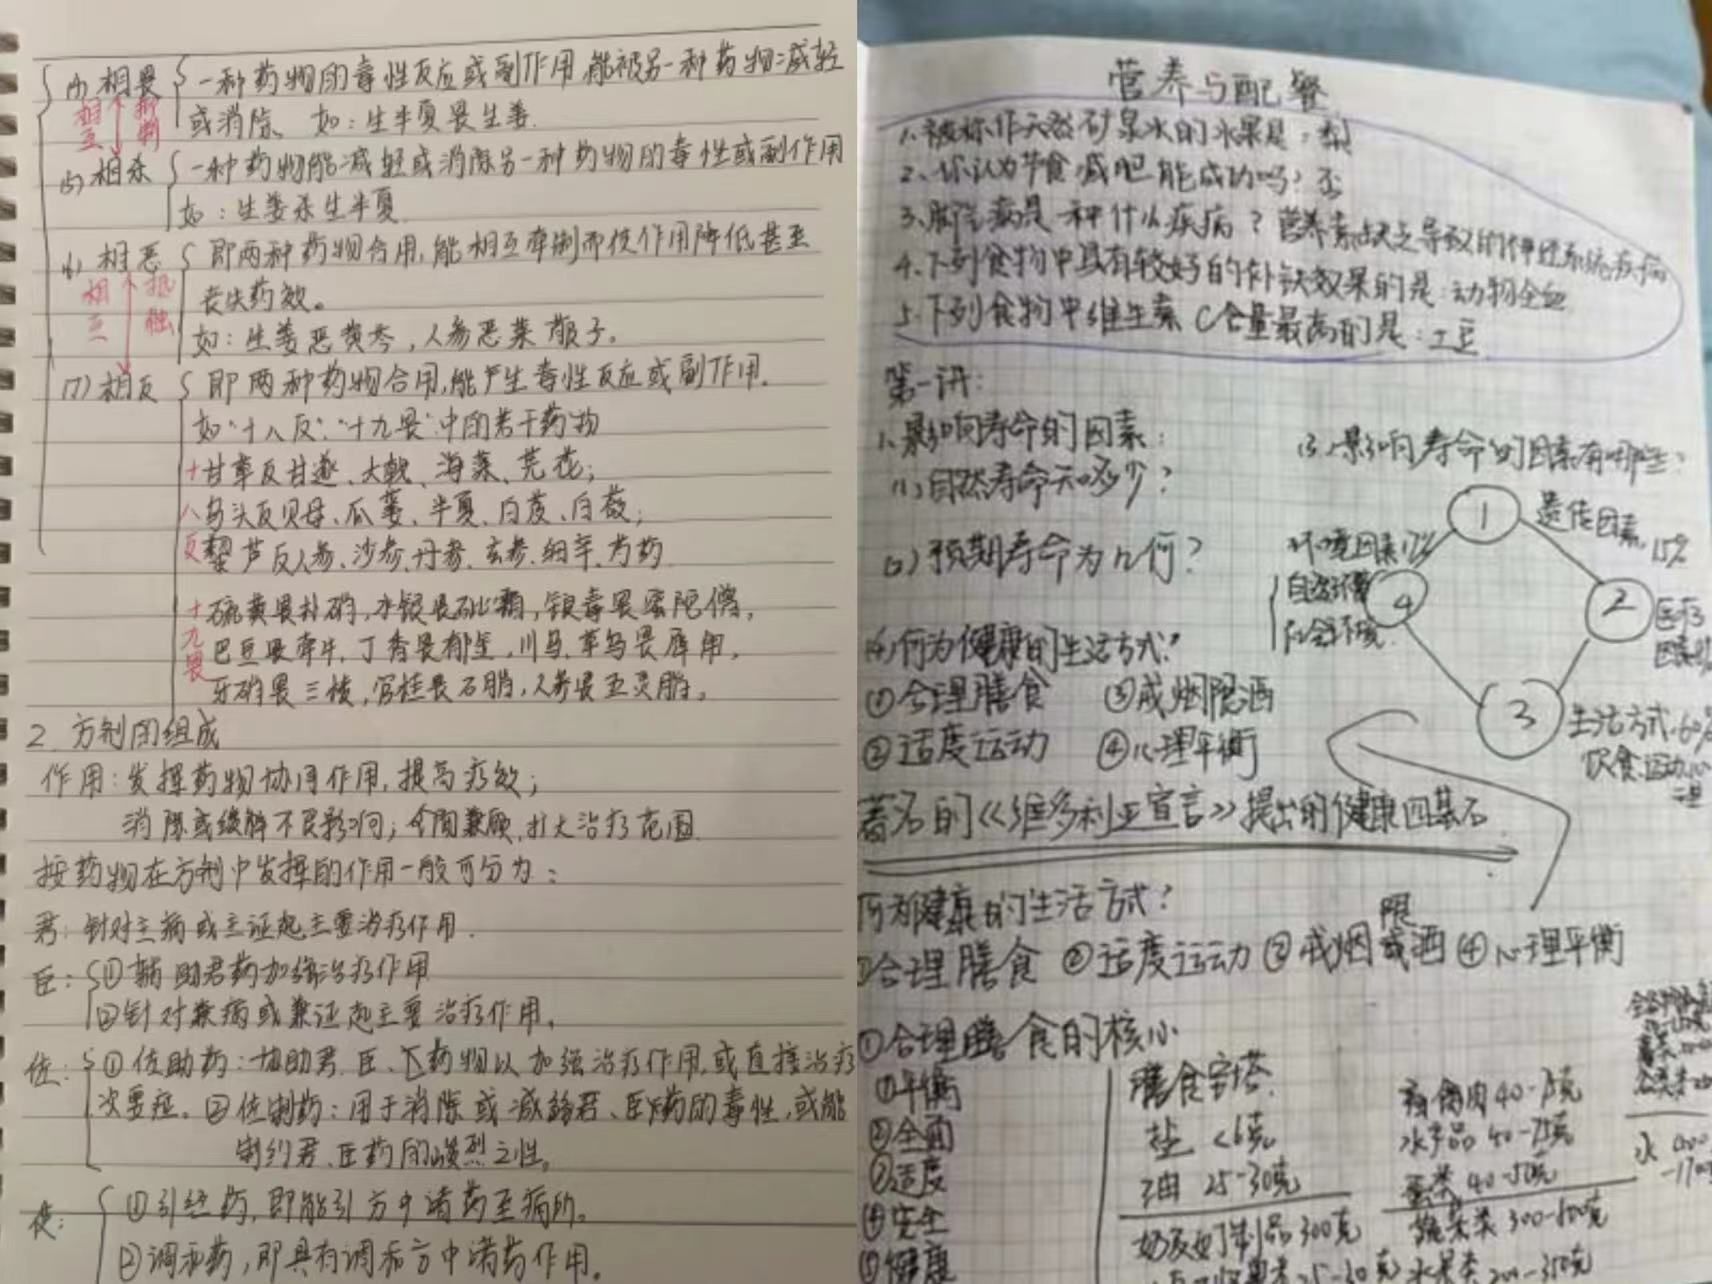 (4)相畏 一种药物的毒性反应或副作用,能被另一种药物减轻
或消除、如:生半夏畏生姜.
相互 抑制
(5)相杀 一种药物能减轻或消除另一种药物的毒性或副作用
如:生姜杀生半夏.
(6)相恶 即两种药物合用,能相互牵制而使作用降低甚至
丧失药效。
相互
如:生姜恶黄芩,人参恶莱菔子。
(7)相反 即两种药物合用,能产生毒性反应或副作用.
如“十八反”.“十九畏”中的若干药物
十 甘草反甘遂、大戟、海藻、芫花;
八 乌头反贝母、瓜蒌、半夏、白芨、白蔹;
反 藜芦反人参、沙参、丹参、玄参、细辛、芍药
十 硫黄畏朴硝,水银畏砒霜,狼毒畏密陀僧,
九 巴豆畏牵牛,丁香畏郁金,川乌、草乌畏犀角,
畏 牙硝畏三棱,官桂畏石脂,人参畏五灵脂。
2.方剂的组成
作用:发挥药物协同作用,提高疗效;
消除或缓解不良影响;全间兼顾,扩大治疗范围.
按药物在方剂中发挥的作用一般可分为:
君:针对主病或主证起主要治疗作用.
臣:①辅助君药加强治疗作用
②针对兼病或兼证起主要治疗作用。
佐:①佐助药:协助君、臣、药物以加强治疗作用,或直接治疗
次要症。②佐制药:用于消除或减弱君、臣药的毒性,或能
制约君、臣药的峻烈之性。
使:①引经药,即能引方中诸药至病所。
②调和药,即具有调和方中诸药作用。
营养与配餐
1.被称作天然矿泉水的水果是:梨
2.你认为节食减肥能成功吗?否
3.脚气病是一种什么疾病?营养素缺乏导致的神经系统疾病
4.下列食物中具有较好的补铁效果的是:动物全血
5.下列食物中维生素C含量最高的是:土豆
第一讲:
1.影响寿命的因素:
(3)影响寿命的因素有哪些?
(1)自然寿命知多少?
① 遗传因素 15%
(2)预期寿命为几何?
环境因素17%
自然环境
社会环境
④
② 医疗
因素8%
③ 生活方式60%
饮食.运动.心理
(4)何为健康的生活方式?
①合理膳食 ③戒烟限酒
②适度运动 ④心理平衡
著名的《维多利亚宣言》提出的健康四基石
何为健康的生活方式?
限
①合理膳食 ②适度运动 ③戒烟戒酒 ④心理平衡
①合理膳食的核心
①平衡
②全面
③适度
④安全
⑤健康
膳食宝塔
盐 <6克
油 25-30克
奶及奶制品300克
畜禽肉40-75克
水产品40-75克
蛋类40-50克
蔬菜类300-500克
水果类200-350克
水